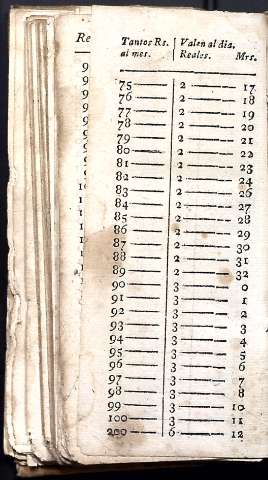 Re
Tantos Rs. al mes. | Valen al dia. Reales. Mrs.
75 — 2 — 17
76 — 2 — 18
77 — 2 — 19
78 — 2 — 20
79 — 2 — 21
80 — 2 — 22
81 — 2 — 23
82 — 2 — 24
83 — 2 — 26
84 — 2 — 27
85 — 2 — 28
86 — 2 — 29
87 — 2 — 30
88 — 2 — 31
89 — 2 — 32
90 — 3 — 0
91 — 3 — 1
92 — 3 — 2
93 — 3 — 3
94 — 3 — 4
95 — 3 — 5
96 — 3 — 6
97 — 3 — 7
98 — 3 — 8
99 — 3 — 10
100 — 3 — 11
200 — 6 — 12